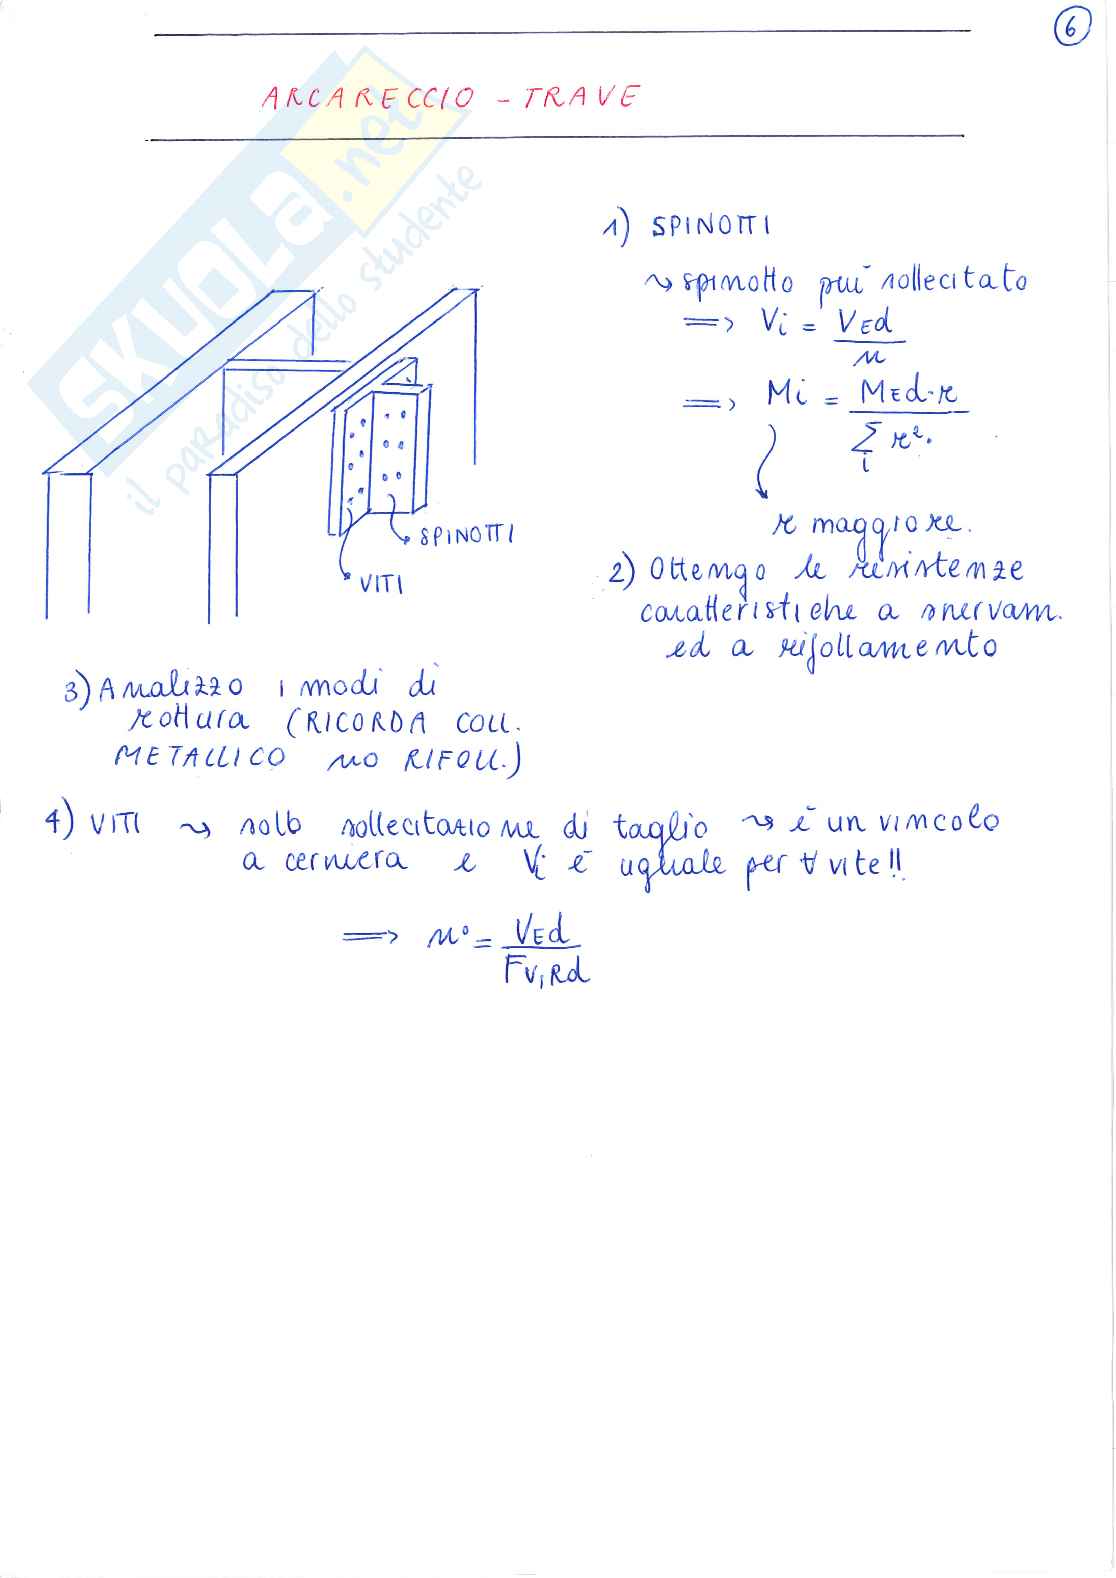 6
ARCARECCIO - TRAVE
SKUOLA.net
il paradiso dello studente
1) SPINOTTI
⇝ spinotto più sollecitato
⇒ Vi = VEd / n
⇒ Mi = MEd·r / Σi r².
r maggiore.
SPINOTTI
VITI
2) Ottengo le resistenze
caratteristiche a snervam.
ed a rifollamento
3) Analizzo i modi di
rottura (RICORDA COLL.
METALLICO NO RIFOLL.)
4) VITI ⇝ solo sollecitazione di taglio ⇝ è un vincolo
a cerniera e Vi è uguale per ∀ vite!!
⇒ n° = VEd / Fv,Rd